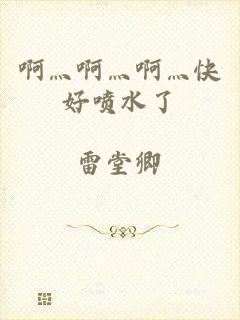 啊灬啊灬啊灬快
好喷水了
雷堂卿